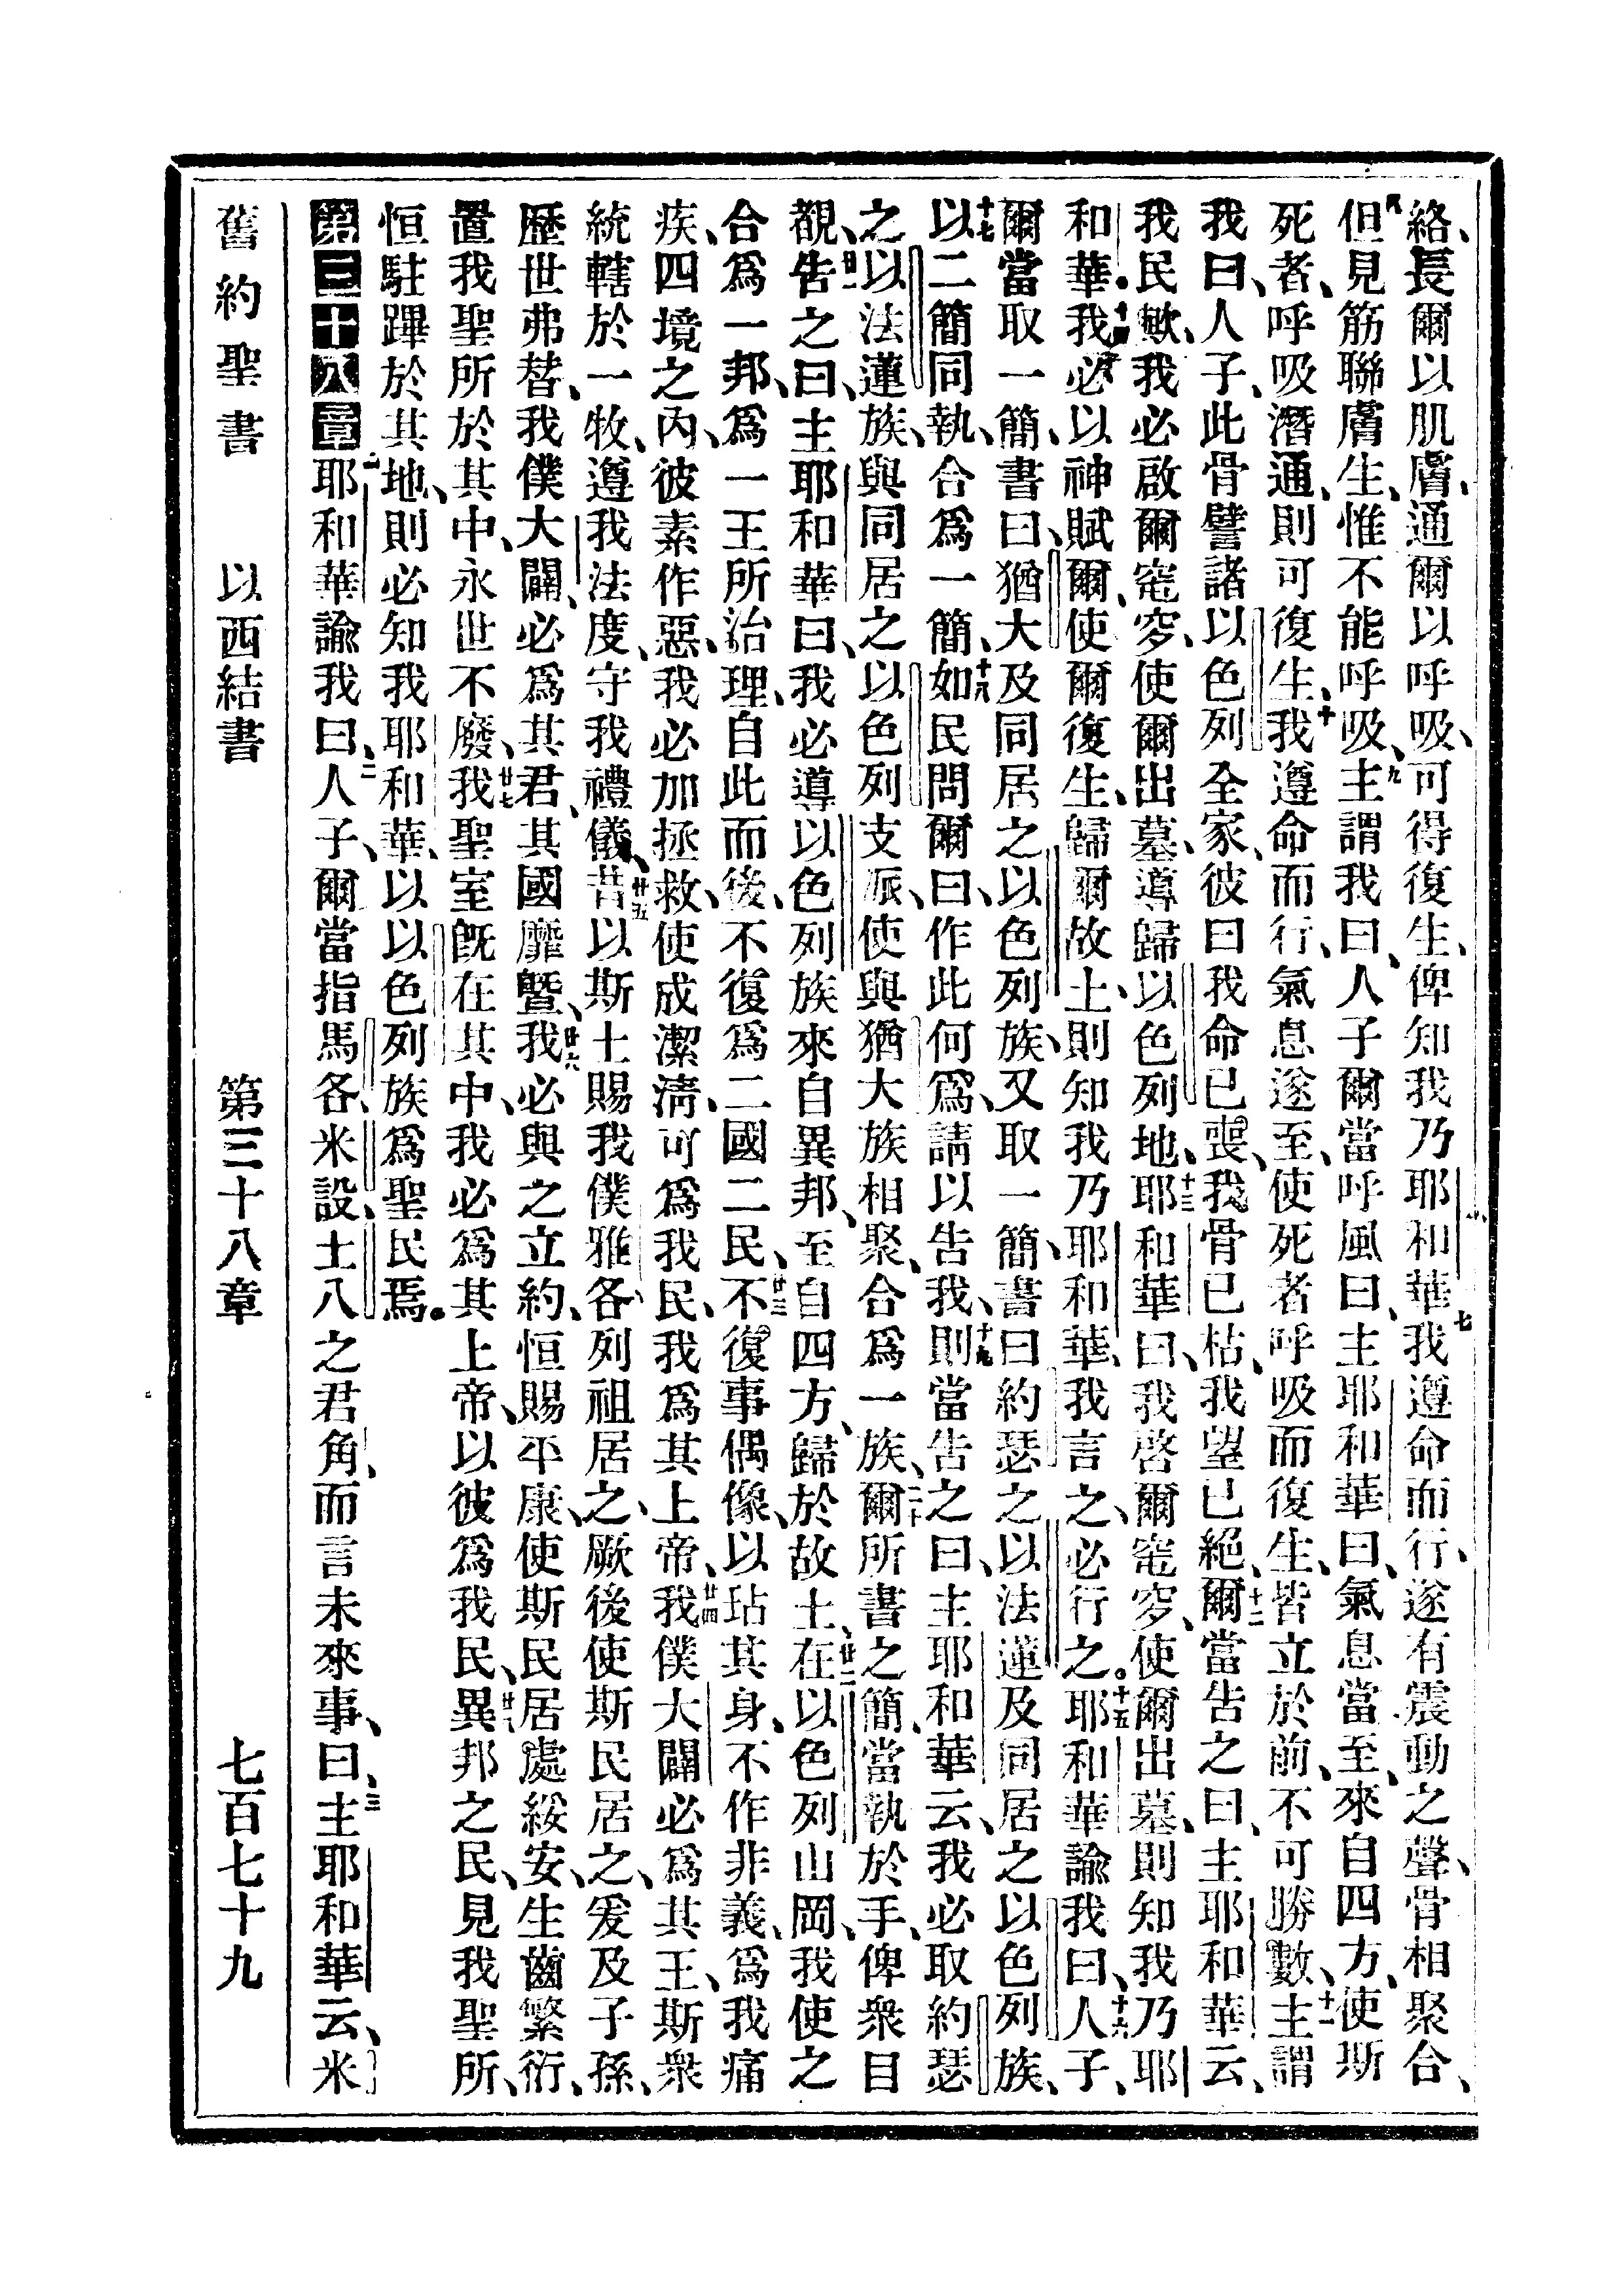 絡、長爾以肌膚、通爾以呼吸、可得復生、俾知我乃耶和華、七我遵命而行、遂有震動之聲、骨相聚合、
八但見筋聯膚生、惟不能呼吸、九主謂我曰、人子爾當呼風曰、主耶和華曰、氣息當至、來自四方、使斯
死者、呼吸潛通、則可復生、十我遵命而行、氣息遂至、使死者呼吸而復生、皆立於前、不可勝數、十一主謂
我曰、人子、此骨譬諸以色列全家、彼曰我命已喪、我骨已枯、我望已絕、十二爾當告之曰、主耶和華云、
我民歟、我必啟爾窀穸、使爾出墓、導歸以色列地、十三耶和華曰、我啓爾窀穸、使爾出墓、則知我乃耶
和華。十四我必以神賦爾、使爾復生、歸爾故土、則知我乃耶和華、我言之、必行之。十五耶和華諭我曰、十六人子、
爾當取一簡、書曰、猶大及同居之以色列族、又取一簡、書曰約瑟之以法蓮及同居之以色列族、
十七以二簡同執、合爲一簡、十八如民問爾曰、作此何爲、請以告我、十九則當告之曰、主耶和華云、我必取約瑟
之以法蓮族、與同居之以色列支派、使與猶大族相聚、合爲一族、二十爾所書之簡、當執於手、俾衆目
觀、廿一告之曰、主耶和華曰、我必導以色列族來自異邦、至自四方、歸於故土、廿二在以色列山岡、我使之
合爲一邦、爲一王所治理、自此而後、不復爲二國二民、廿三不復事偶像、以玷其身、不作非義、爲我痛
疾、四境之內、彼素作惡、我必加拯救、使成潔淸、可爲我民、我爲其上帝、廿四我僕大闢必爲其王、斯衆
統轄於一牧、遵我法度、守我禮儀、廿五昔以斯土賜我僕雅各、列祖居之、厥後使斯民居之、爰及子孫、
歷世弗替、我僕大闢、必爲其君、其國靡曁、廿六我必與之立約、恒賜平康、使斯民居處綏安、生齒繁衍、
置我聖所於其中、永世不廢、廿七我聖室旣在其中、我必爲其上帝、以彼爲我民、廿八異邦之民、見我聖所、
恒駐蹕於其地、則必知我耶和華、以以色列族爲聖民焉。
第三十八章一耶和華諭我曰、二人子、爾當指馬各、米設、土八之君角、而言未來事、曰、三主耶和華云、米
舊約聖書 以西結書 第三十八章 七百七十九